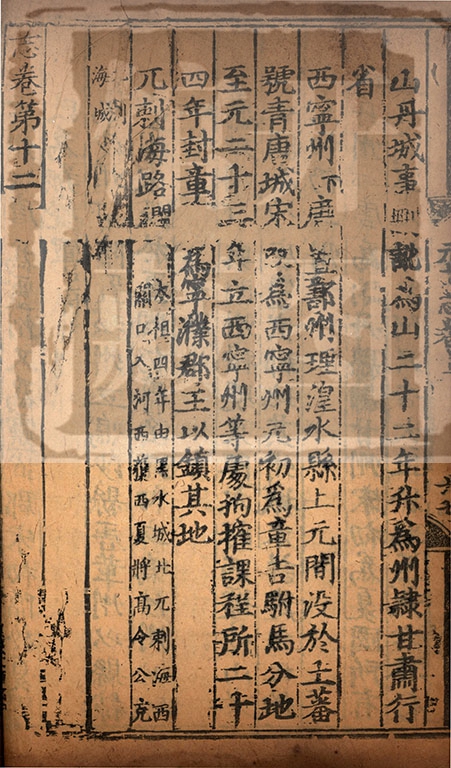 山丹城事訛為山二十二年升為州隸甘肅行
省
西寧州下唐置鄯州理湟水縣上元間没於土蕃
號青唐城宋改為西寧州元初為章吉駙馬分地
至元二十三年立西寧州等處拘榷課程所二十
四年封章為寧濮郡王以鎮其地
兀剌海路闕
太祖四年由黑水城北兀剌海西
關口入河西獲西夏將高令公克
兀剌
海城
志卷第十二